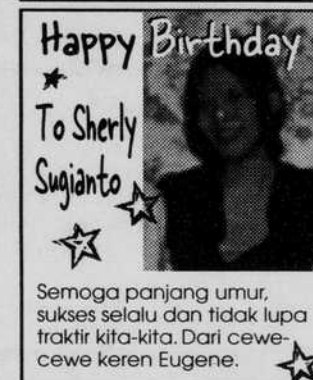 Happy Birthday
To Sherly
Sugianto
Semoga panjang umur,
sukses selalu dan tidak lupa
traktir kita-kita. Dari cewe-
cewe keren Eugene.